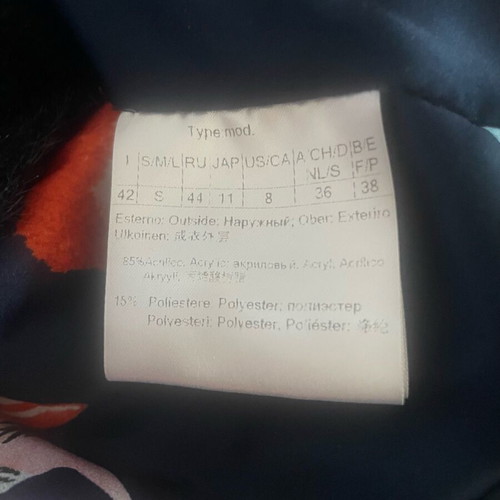 Type mod.
I S/M/L RU JAP US/CA A CH/D B/E
NL/S F/P
42 S 44 11 8 36 38
Esterno: Outside: Наружный: Ober: Exteriro
Ulkoinen:
85% Acrilico, Acrylic: акриловый, Acryl, Acrilico
Akryyli,
15% Poliestere, Polyester, полиэстер
Polyesteri: Polyester, Poliéster: 涤纶